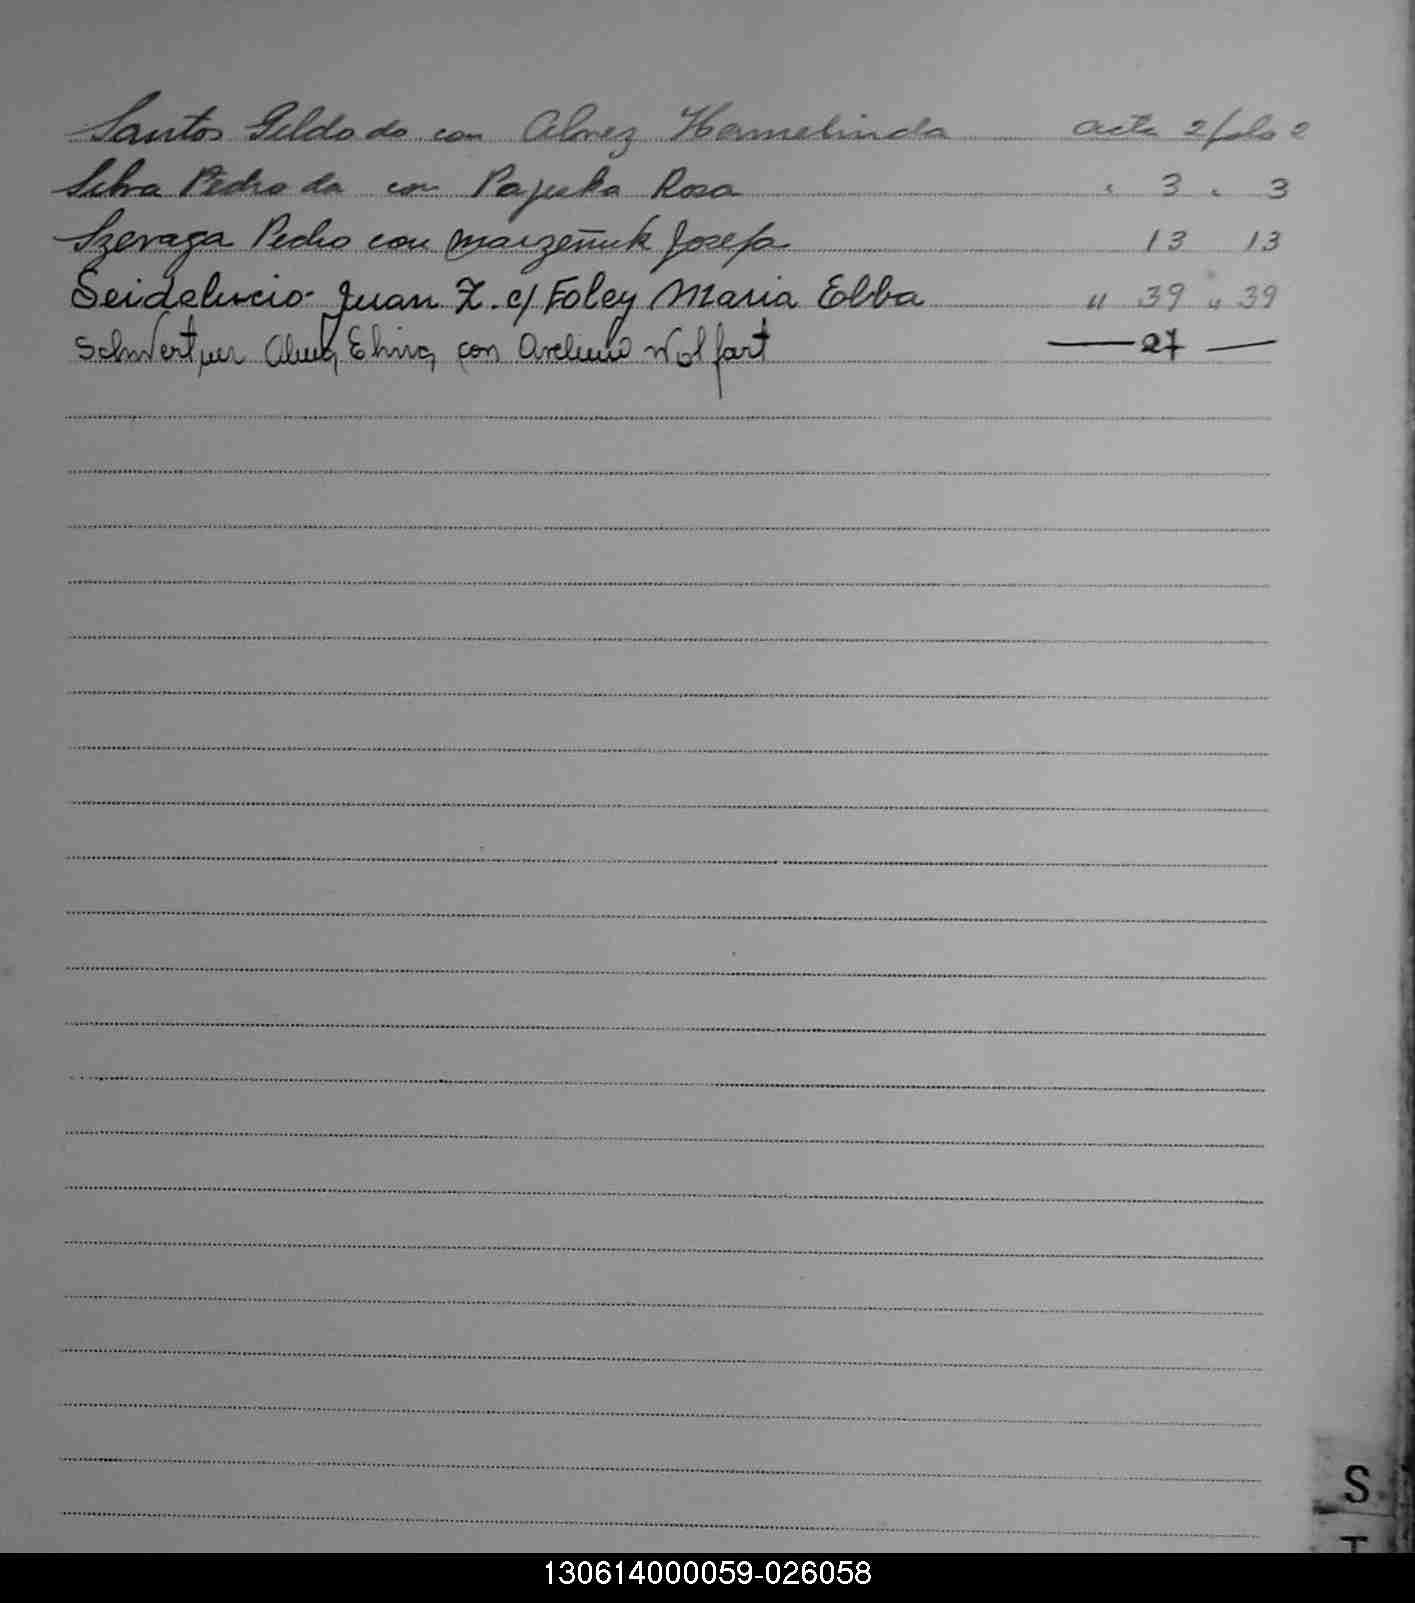 Santos Gildo do con Alvez Hormelinda acta 2 folo 2
Silva Pedro da con Pajuka Rosa " 3 " 3
Szeraga Pedro con Josefa 13 13
Juan Z. c/ Foley Maria Elba " 39 " 39
con Avelino Wolfart — 27 —
S
T
130614000059-026058